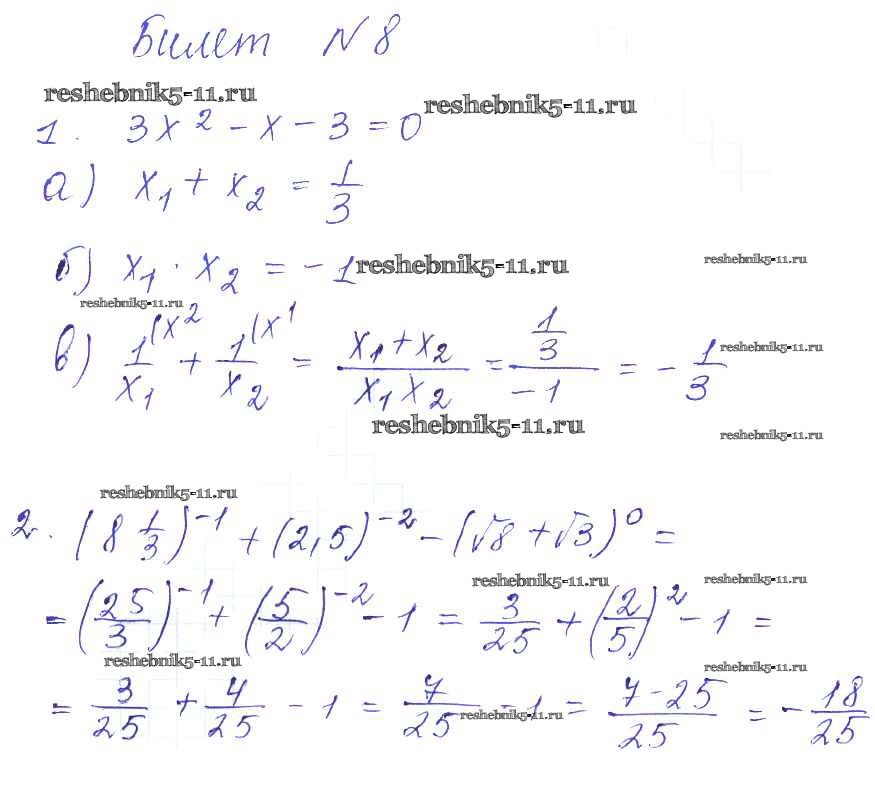 Билет N 8
reshebnik5-11.ru
reshebnik5-11.ru
1. 3x² - x - 3 = 0
а) x₁ + x₂ = 1/3
б) x₁ · x₂ = -1 reshebnik5-11.ru reshebnik5-11.ru
reshebnik5-11.ru
в) 1/x₁ (x₂ + 1/x₂ (x₁ = (x₁ + x₂)/(x₁ x₂) = (1/3)/(-1) = -1/3
reshebnik5-11.ru
reshebnik5-11.ru reshebnik5-11.ru
reshebnik5-11.ru
2. (8 1/3)⁻¹ + (2,5)⁻² - (√8 + √3)⁰ =
reshebnik5-11.ru reshebnik5-11.ru
= (25/3)⁻¹ + (5/2)⁻² - 1 = 3/25 + (2/5)² - 1 =
reshebnik5-11.ru reshebnik5-11.ru
= 3/25 + 4/25 - 1 = 7/25 - 1 = (7-25)/25 = -18/25
reshebnik5-11.ru